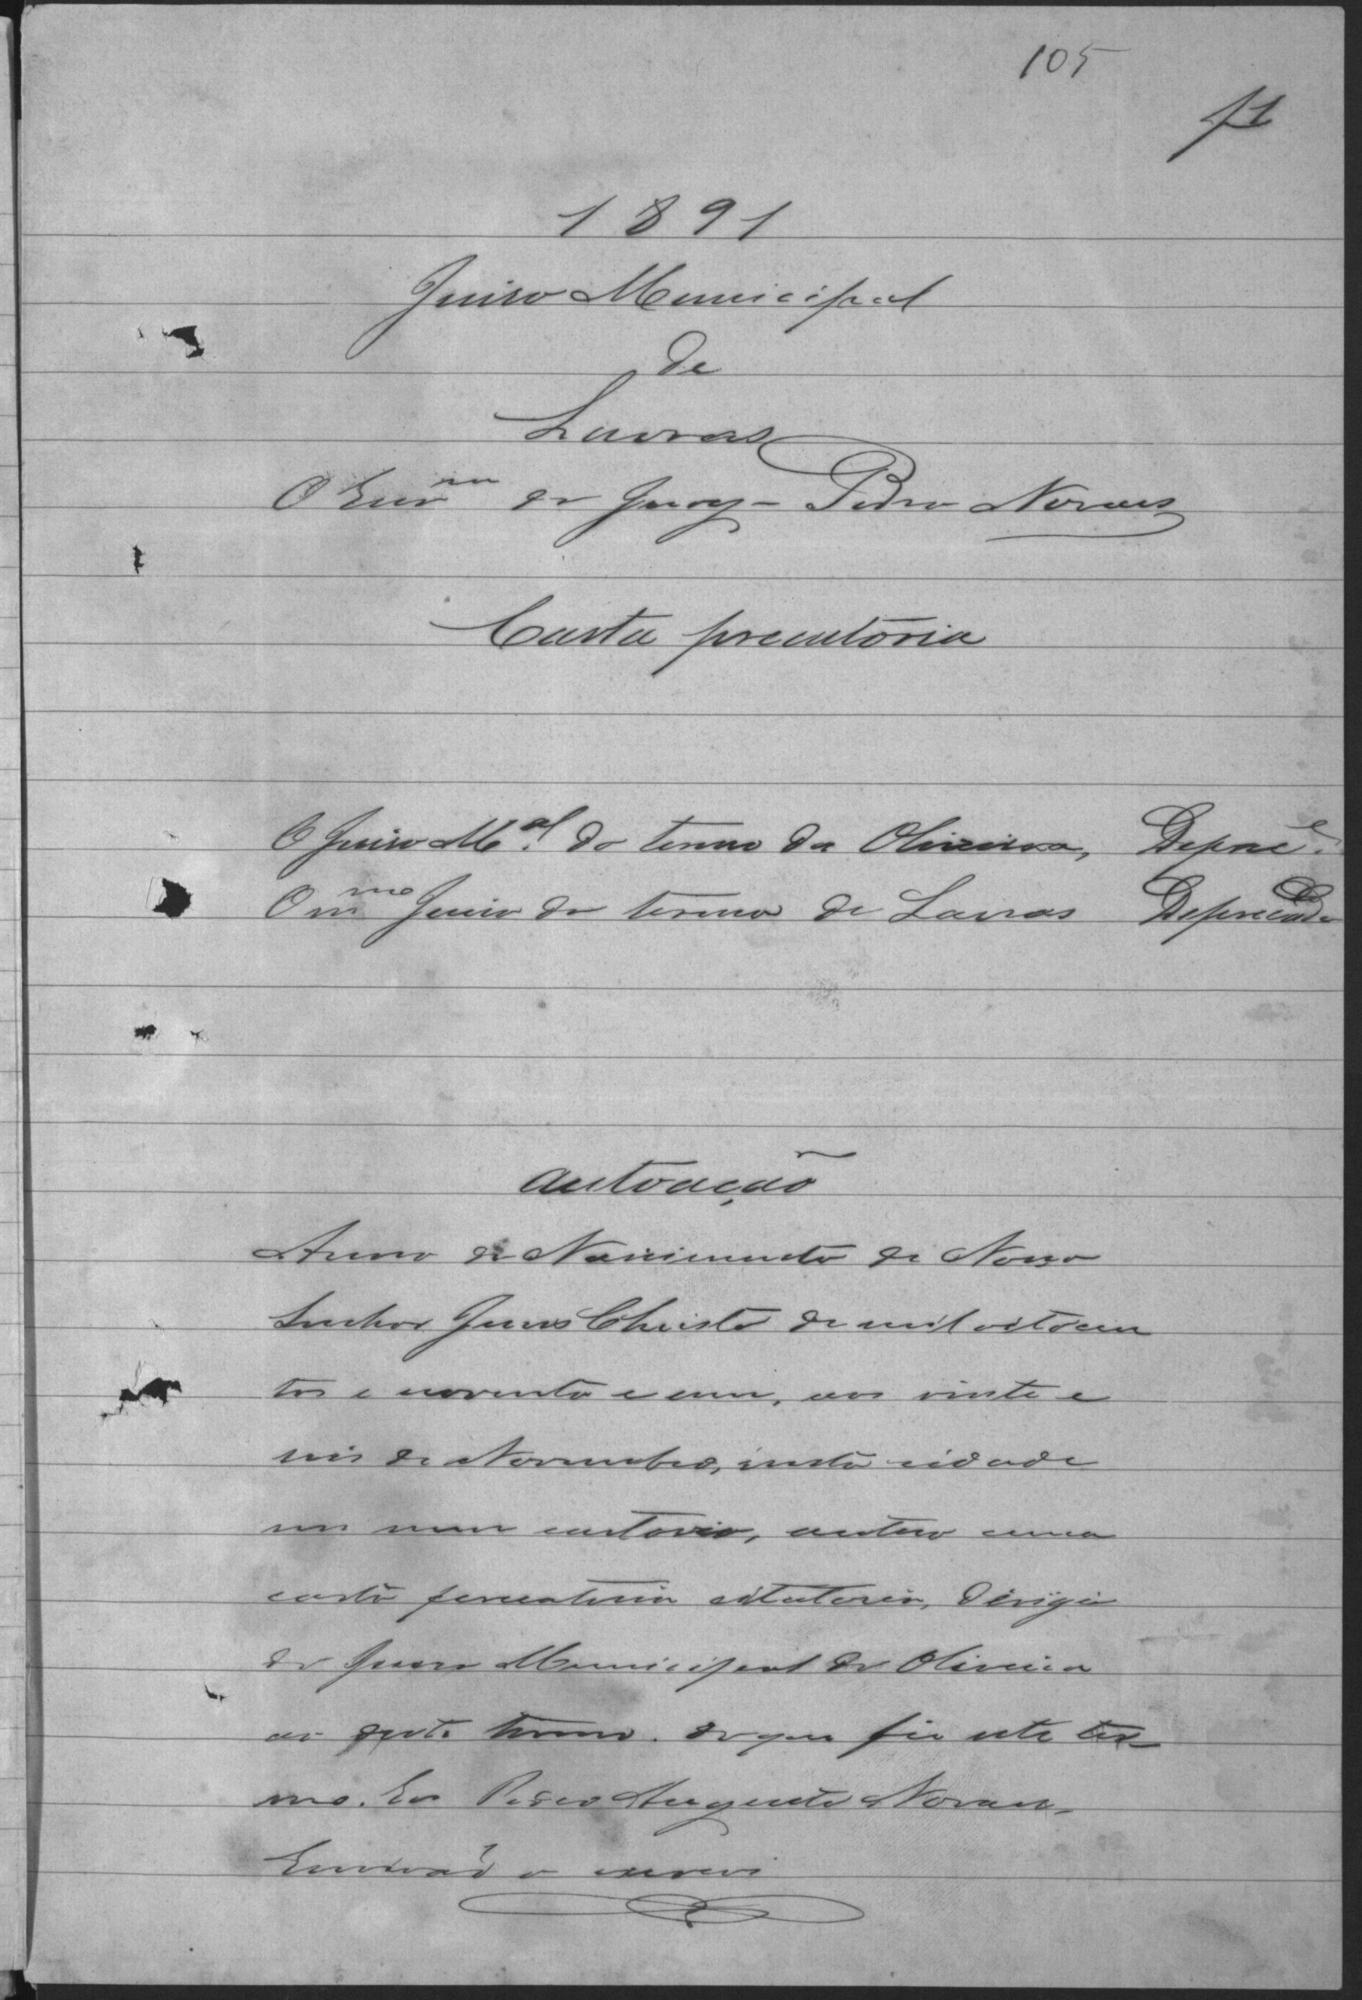 105
f1
1891
Juiso Municipal
de
Lavras
O Escr.m do Jury - Pedro Novaes
Carta precatória
O Juiso M.al do termo da Oliveira, Depre.e
O m.mo Juiso do termo de Lavras Deprecado
Autoação
Anno do Nascimento de Nosso
Senhor Jesus Christo de mil oitocen
tos e noventa e um, aos vinte e
seis de Novembro, nesta cidade
em meu cartorio, autuo uma
carta precatoria citatoria, dirigi
do Juiso Municipal de Oliveira
ao deste termo. do que fiz este ter_
mo. Eu Pedro Augusto Novaes
Escrivão o escrevi